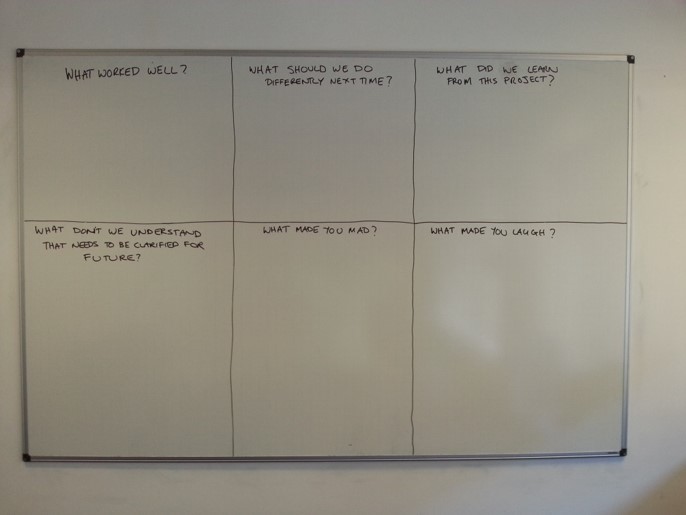 WHAT WORKED WELL?
WHAT SHOULD WE DO
DIFFERENTLY NEXT TIME?
WHAT DID WE LEARN
FROM THIS PROJECT?
WHAT DON'T WE UNDERSTAND
THAT NEEDS TO BE CLARIFIED FOR
FUTURE?
WHAT MADE YOU MAD?
WHAT MADE YOU LAUGH?